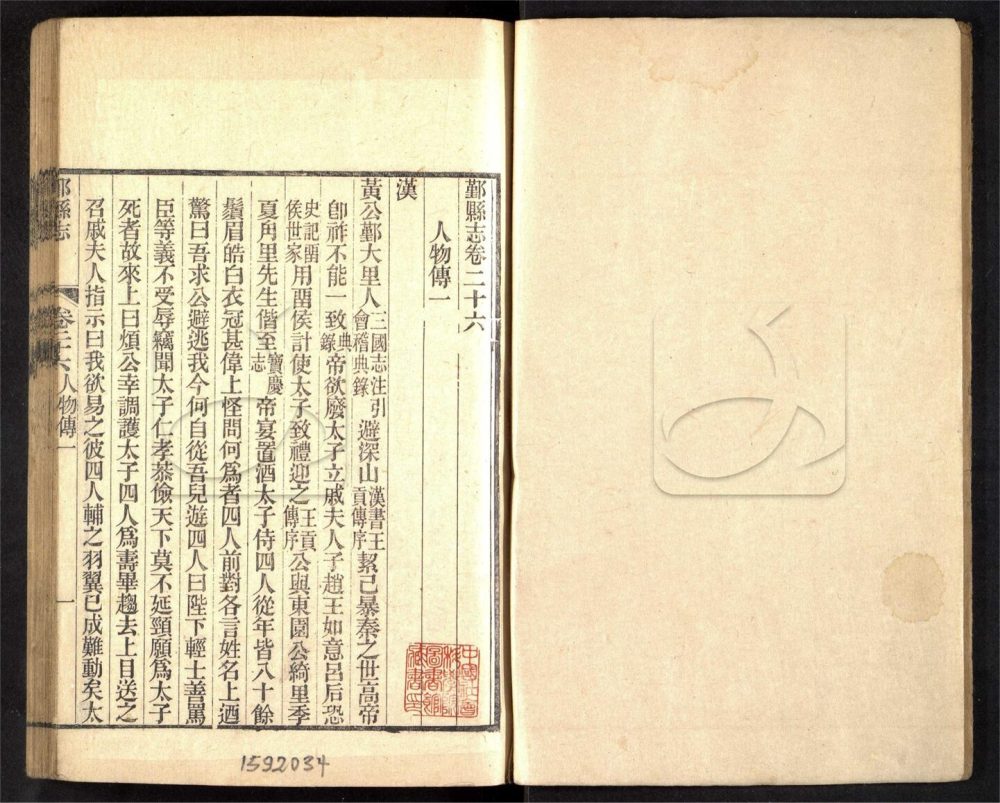 鄞縣志卷二十六
人物傳一
漢
黃公鄞大里人三國志注引會稽典錄避深山漢書王貢傳序絜己暴秦之世高帝
卽祚不能一致典錄帝欲廢太子立戚夫人子趙王如意呂后恐
史記畱侯世家用畱侯計使太子致禮迎之王貢傳序公與東園公綺里季
夏甪里先生偕至寶慶志帝宴置酒太子侍四人從年皆八十餘
鬚眉皓白衣冠甚偉上怪問何爲者四人前對各言姓名上迺
驚曰吾求公避逃我今何自從吾兒遊四人曰陛下輕士善罵
臣等義不受辱竊聞太子仁孝恭儉天下莫不延頸願爲太子
死者故來上曰煩公幸調護太子四人爲壽畢趨去上目送之
召戚夫人指示曰我欲易之彼四人輔之羽翼已成難動矣太
縣志
卷二十六人物傳一
一
圖書館
藏書印
1592034